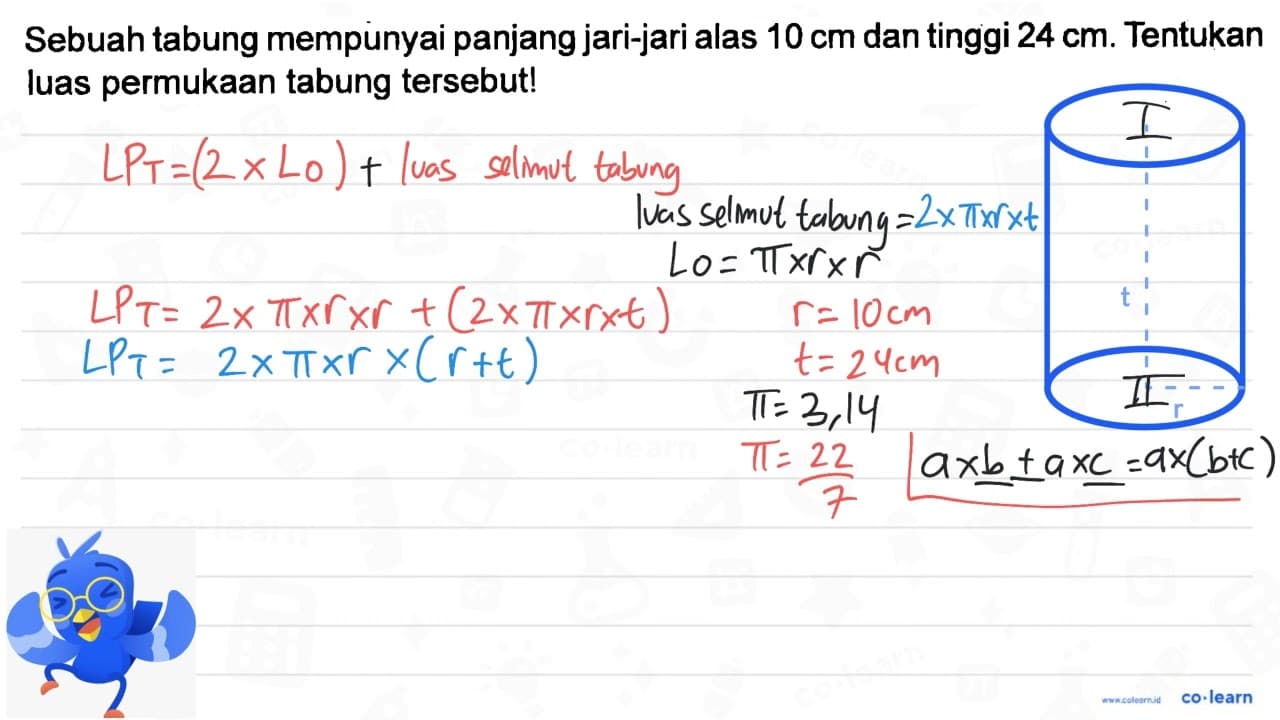 Sebuah tabung mempunyai panjang jari-jari alas 10 cm dan tinggi 24 cm. Tentukan
luas permukaan tabung tersebut!
I
LPT=(2×LO)+ luas selimut tabung
luas selmut tabung=2×π×r×t
LO=π×r×r
LPT= 2×π×r×r +(2×π×r×t)
r=10cm
t
LPT= 2×π×r×(r+t)
t=24cm
II
r
π=3,14
π=22/7
a×b+a×c=a×(b+c)
www.colearn.id
co·learn